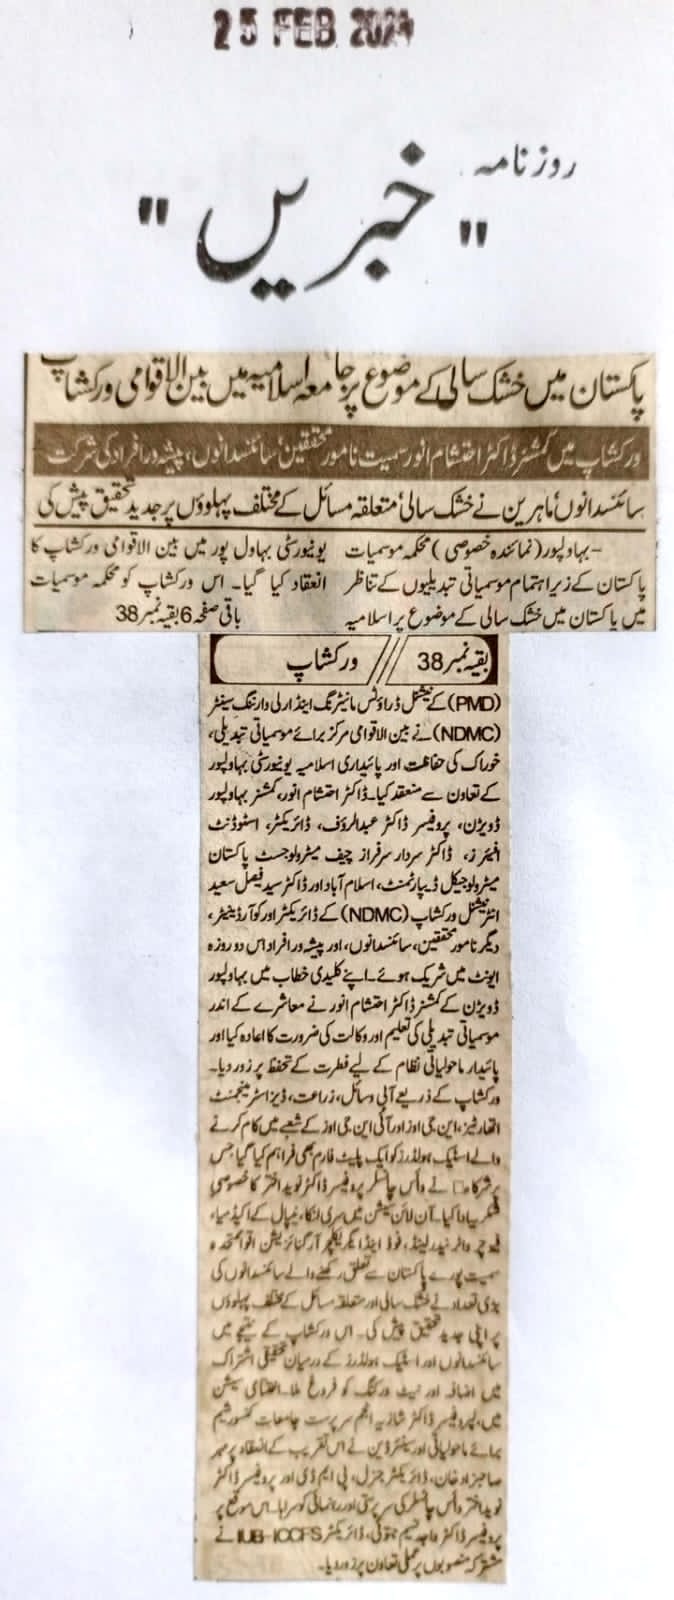 25 FEB 2024
روزنامہ
"خبریں"
پاکستان میں خشک سالی کے موضوع پر جامعہ اسلامیہ میں بین الاقوامی ورکشاپ
ورکشاپ میں کمشنر ڈاکٹر احتشام انور سمیت نامور محققین، سائنسدانوں، پیشہ ور افراد کی شرکت
سائنسدانوں، ماہرین نے خشک سالی، متعلقہ مسائل کے مختلف پہلوؤں پر جدید تحقیق پیش کی
بہاولپور (نمائندہ خصوصی) محکمہ موسمیات
پاکستان کے زیر اہتمام موسمیاتی تبدیلیوں کے تناظر
میں پاکستان میں خشک سالی کے موضوع پر اسلامیہ
یونیورسٹی بہاول پور میں بین الاقوامی ورکشاپ کا
انعقاد کیا گیا۔ اس ورکشاپ کو محکمہ موسمیات
باقی صفحہ 6 بقیہ نمبر 38
بقیہ نمبر 38 ورکشاپ
(PMD) کے نیشنل ڈراؤٹس مانیٹرنگ اینڈ ارلی وارننگ سینٹر
(NDMC) نے بین الاقوامی مرکز برائے موسمیاتی تبدیلی،
خوراک کی حفاظت اور پائیداری اسلامیہ یونیورسٹی بہاولپور
کے تعاون سے منعقد کیا۔ ڈاکٹر احتشام انور، کمشنر بہاولپور
ڈویژن، پروفیسر ڈاکٹر عبدالرؤف، ڈائریکٹر، اسٹوڈنٹ
افیئرز، ڈاکٹر سردار سرفراز چیف میٹرولوجسٹ پاکستان
میٹرولوجیکل ڈیپارٹمنٹ، اسلام آباد اور ڈاکٹر سید فیصل سعید
انٹرنیشنل ورکشاپ (NDMC) کے ڈائریکٹر اور کوآرڈینیٹر،
دیگر نامور محققین، سائنسدانوں، اور پیشہ ور افراد اس دو روزہ
ایونٹ میں شریک ہوئے۔ اپنے کلیدی خطاب میں بہاولپور
ڈویژن کے کمشنر ڈاکٹر احتشام انور نے معاشرے کے اندر
موسمیاتی تبدیلی کی تعلیم اور وکالت کی ضرورت کا اعادہ کیا اور
پائیدار ماحولیاتی نظام کے لیے فطرت کے تحفظ پر زور دیا۔
ورکشاپ کے ذریعے آبی وسائل، زراعت، ڈیزاسٹر مینجمنٹ
اتھارٹیز، این جی اوز اور آئی این جی اوز کے شعبے میں کام کرنے
والے اسٹیک ہولڈرز کو ایک پلیٹ فارم بھی فراہم کیا گیا جس
پر شرکاء نے وائس چانسلر پروفیسر ڈاکٹر نوید اختر کا خصوصی
شکریہ ادا کیا۔ آن لائن سیشن میں سری لنکا، نیپال کے اکیڈمیا،
فیوچر واٹر نیدرلینڈ، فوڈ اینڈ ایگریکلچر آرگنائزیشن اقوام متحدہ
سمیت پورے پاکستان سے تعلق رکھنے والے سائنسدانوں کی
بڑی تعداد نے خشک سالی اور متعلقہ مسائل کے مختلف پہلوؤں
پر اپنی جدید تحقیق پیش کی۔ اس ورکشاپ کے نتیجے میں
سائنسدانوں اور اسٹیک ہولڈرز کے درمیان تحقیقی اشتراک
میں اضافہ اور نیٹ ورکنگ کو فروغ ملا۔ اختتامی سیشن
میں، پروفیسر ڈاکٹر شازیہ انجم سرپرست جامعات کنسورشیم
برائے ماحولیاتی اور سینئر ڈین نے اس تقریب کے انعقاد پر مہر
صاحبزاد خان، ڈائریکٹر جنرل، پی ایم ڈی اور پروفیسر ڈاکٹر
نوید اختر وائس چانسلر کی سرپرستی اور رہنمائی کو سراہا۔ اس موقع پر
پروفیسر ڈاکٹر واجد نسیم جتوئی، ڈائریکٹر IUB-ICCFS نے
مشترکہ منصوبوں پر عملی تعاون پر زور دیا۔